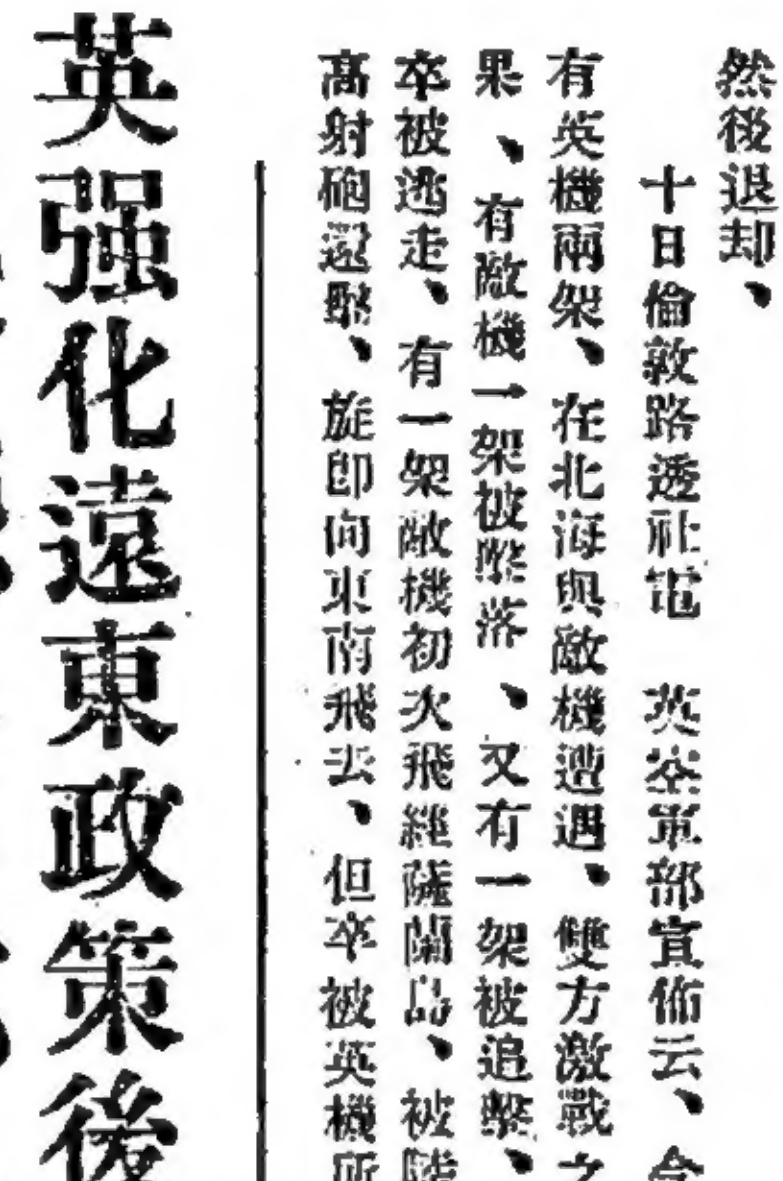 然後退却、
十日倫敦路透社電　英空軍部宣佈云、今
有英機兩架、在北海與敵機遭遇、雙方激戰之
果、有敵機一架被擊落、又有一架被追擊、
卒被逃走、有一架敵機初次飛維薩蘭島、被陸
高射砲還擊、旋即向東南飛去、但卒被英機所
英强化遠東政策後